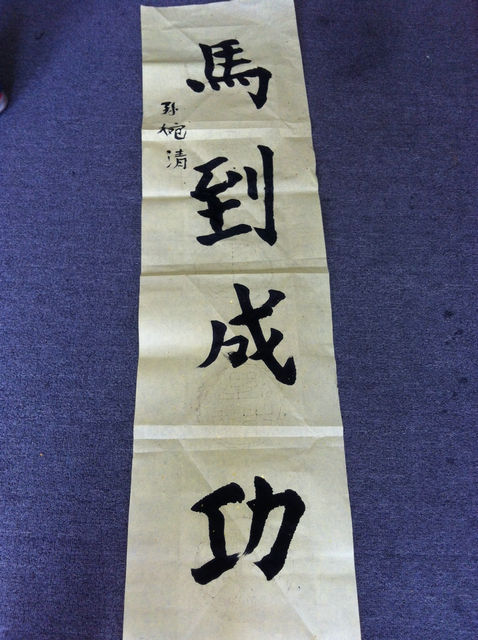 馬到成功
孫婉清